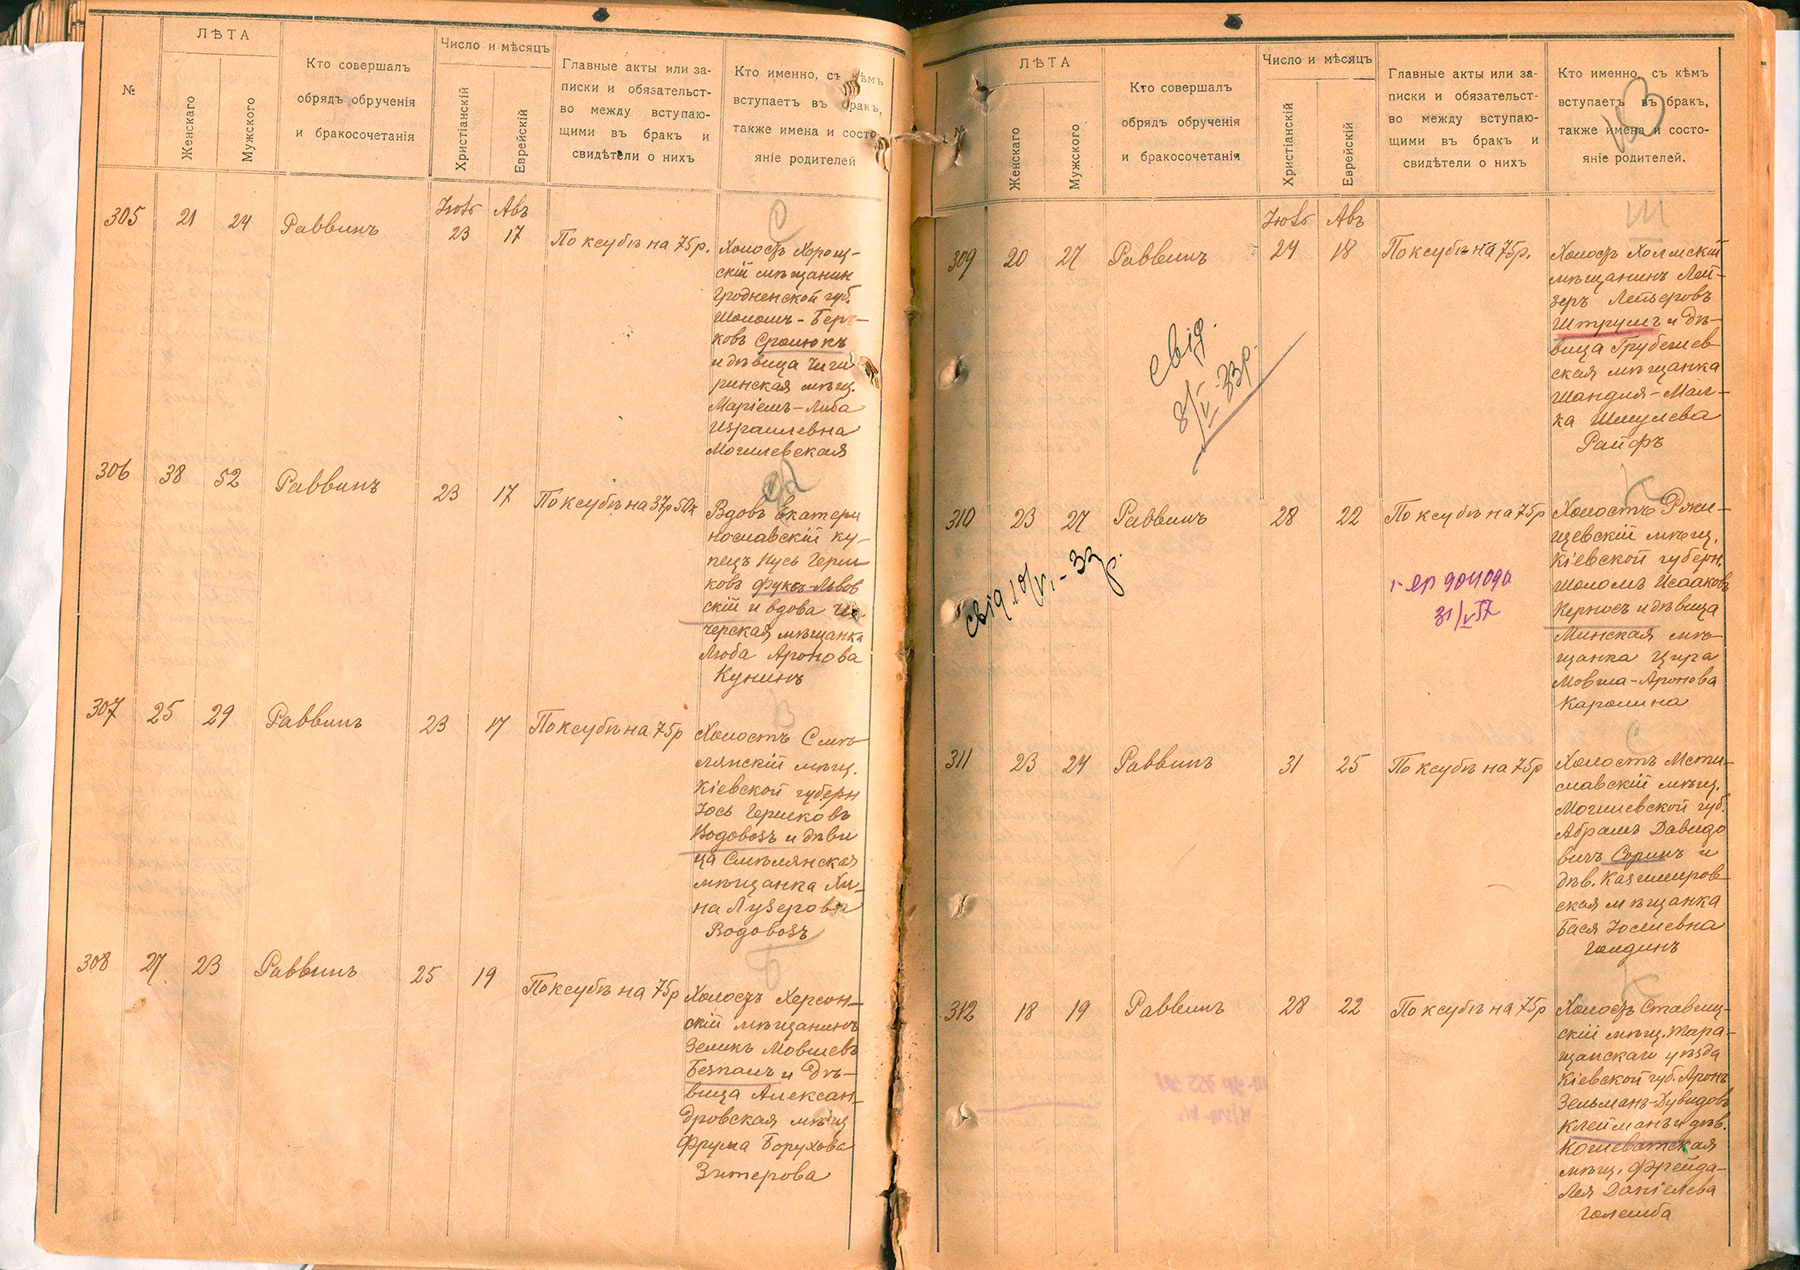 №
ЛѢТА
Женскаго
Мужского
Кто совершалъ
обрядъ обрученія
и бракосочетанія
Число и мѣсяцъ
Христіанскій
Еврейскій
Главные акты или за-
писки и обязательст-
во между вступаю-
щими въ бракъ и
свидѣтели о нихъ
Кто именно, съ кѣмъ
вступаетъ въ бракъ,
также имена и состо-
яніе родителей
305 21 24 Раввинъ Іюль 23 Авъ 17 По ксубѣ на 75 р.
С
Холостъ Хорощ-
скій мѣщанин
Гродненской губ.
Шоломъ-Бер-
ковъ Сролюкъ
и дѣвица Чиги
ринская мѣщ.
Маріемъ-Либа
Израилевна
Могилевская
306 38 52 Раввинъ 23 17 По ксубѣ на 37р 50к
Вдовъ Екатери
нославскій ку-
пецъ Нусь Герш
ковъ Фуксъ-Львов
скій и вдова
черская мѣщанка
Люба Аронова
Кунинъ
307 25 29 Раввинъ 23 17 По ксубѣ на 75р
В
Холостъ Смѣ-
лянскій мѣщ.
Кіевской губерн
Іось Гершковъ
Водовозъ и дѣви
ца Смѣлянская
мѣщанка Хи-
на Лузерова
Водовозъ
308 27 23 Раввинъ 25 19 По ксубѣ на 75р
Б
Холостъ Херсон-
скій мѣщанинъ
Зеликъ Мовшевъ
Безпаль и дѣ-
вица Алексан-
дровская мѣщ
Фрума Борухова
Зитерова
№
ЛѢТА
Женскаго
Мужского
Кто совершалъ
обрядъ обрученія
и бракосочетанія
Число и мѣсяцъ
Христіанскій
Еврейскій
Главные акты или за-
писки и обязательст-
во между вступаю-
щими въ бракъ и
свидѣтели о нихъ
Кто именно, съ кѣмъ
вступаетъ въ бракъ,
также имена и состо-
яніе родителей.
309 20 27 Раввинъ Іюль 24 Авъ 18 По ксубѣ на 75р.
Ш
Холостъ Холмскій
мѣщанинъ Лей-
зеръ Лейзеровъ
Штрумъ и дѣ-
вица Грубешев
ская мѣщанка
Шандля-Мал-
ка Шмулева
Райфъ
свід.
8/V-33р.
310 23 27 Раввинъ 28 22 По ксубѣ на 75р
К
Холостъ Ржи-
щевскій мѣщ.
Кіевской губерн.
Шоломъ Исааковъ
Керносъ и дѣвица
Минская мѣ-
щанка Цира
Мовша-Аронова
Каролина
свід 10/VI-33р.
31/V 57
311 23 24 Раввинъ 31 25 По ксубѣ на 75р
С
Холостъ Мсти-
славскій мѣщ.
Могилевской губ.
Абрамъ Давидо
вичъ Соринъ и
дѣв. Казимиров-
ская мѣщанка
Бася Іосиевна
Голдинъ
312 18 19 Раввинъ 28 22 По ксубѣ на 75р
К
Холостъ Ставищ-
скій мѣщ. Тара-
щанскаго уѣзда
Кіевской губ. Аронъ
Зельманъ-Дувидовъ
Клейманъ и дѣв.
Кошеватская
мѣщ. Фрейда-
Лея Даніелева
Големба